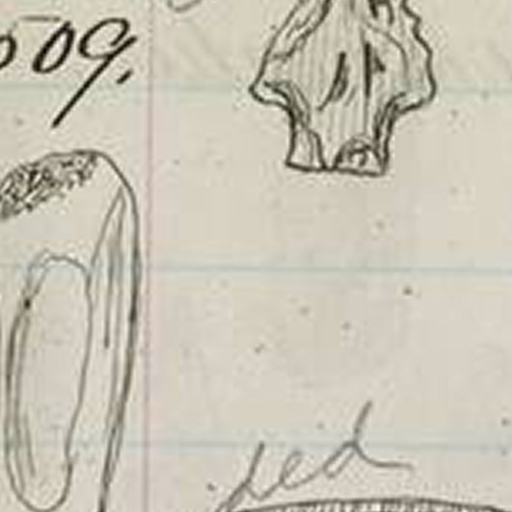 509.
ded